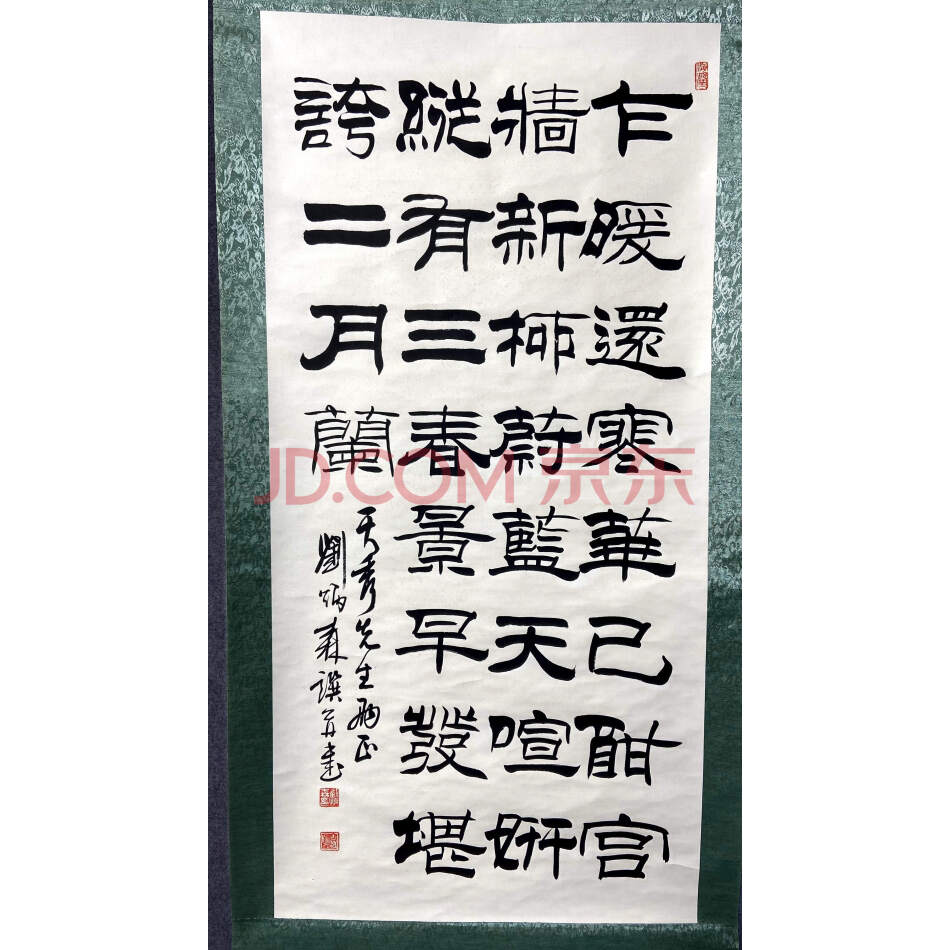 乍暖還寒華已酣宮
牆新柳蔚藍天喧妍
縱有三春景早發堪
誇二月蘭
天秀先生兩正
劉炳森譔并書
JD.COM 京东